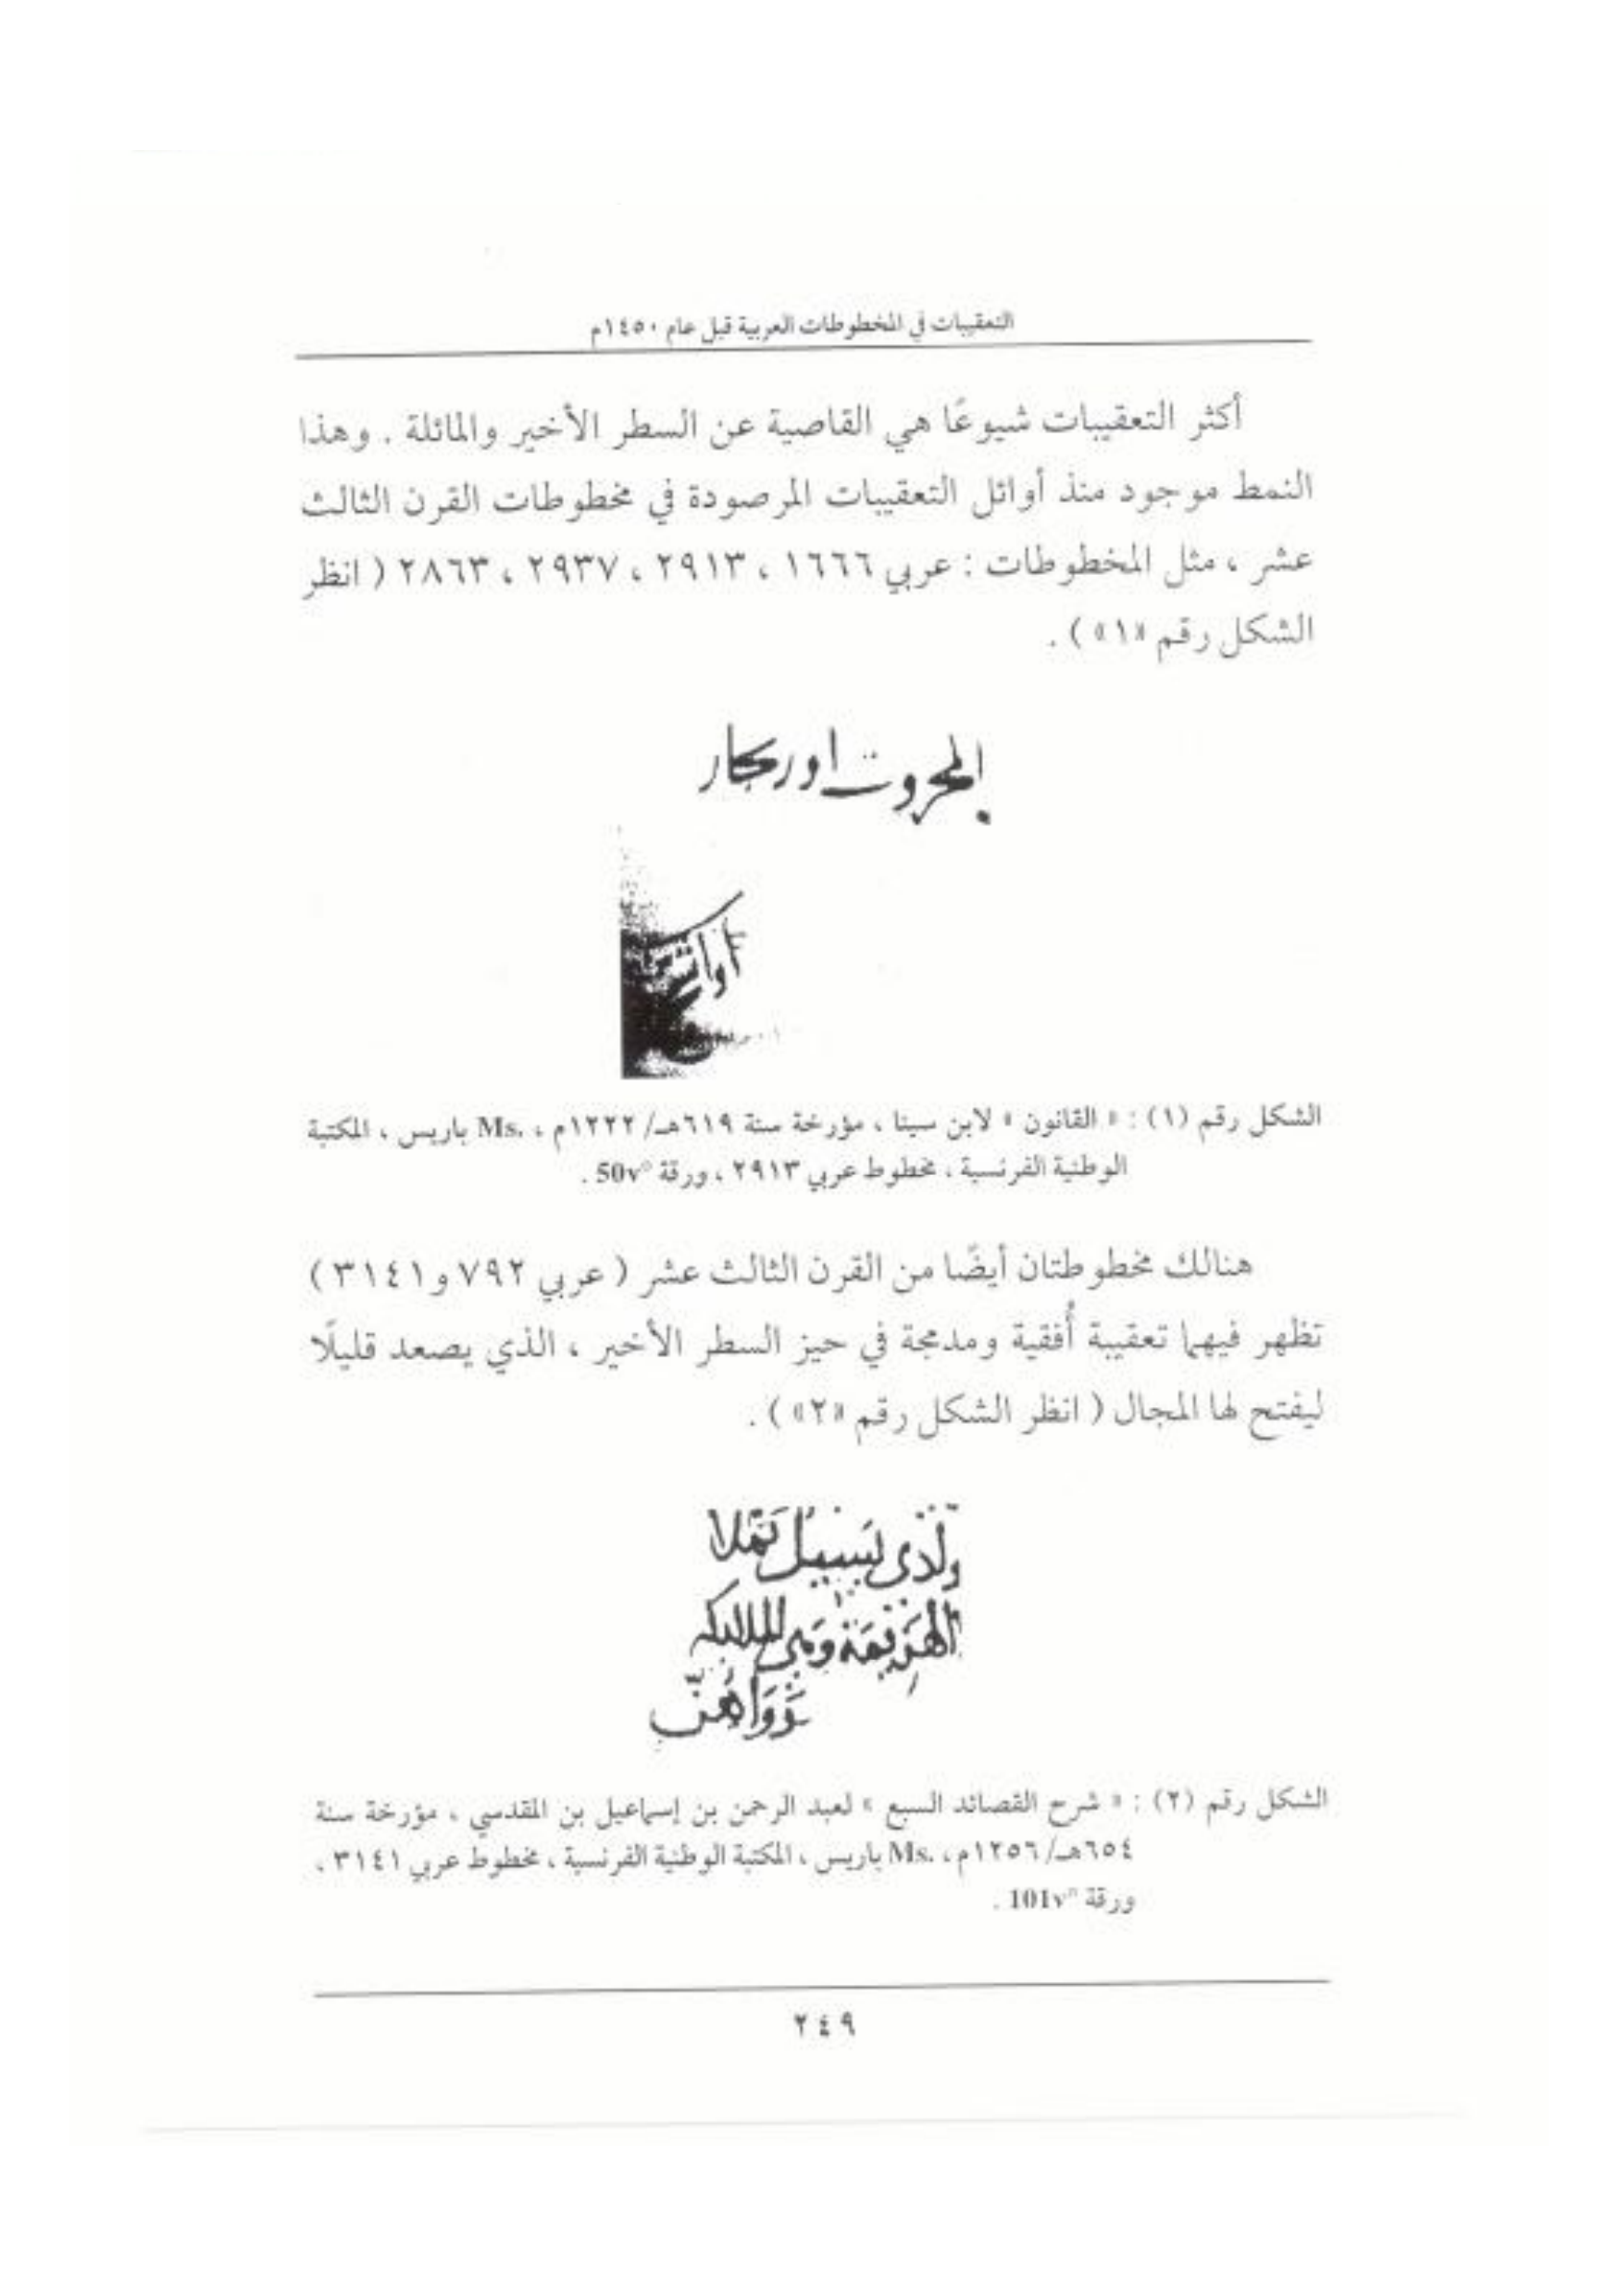 التعقيبات في المخطوطات العربية قبل عام ١٤٥٠م
أكثر التعقيبات شيوعًا هي القاصية عن السطر الأخير والمائلة . وهذا
النمط موجود منذ أوائل التعقيبات المرصودة في مخطوطات القرن الثالث
عشر ، مثل المخطوطات : عربي ١٦٦٦ ، ٢٩١٣ ، ٢٩٣٧ ، ٢٨٦٣ ( انظر
الشكل رقم «١» ) .
الشكل رقم (١) : « القانون » لابن سينا ، مؤرخة سنة ٦١٩هـ/ ١٢٢٢م ، .Ms باريس ، المكتبة
الوطنية الفرنسية ، مخطوط عربي ٢٩١٣ ، ورقة 50v° .
هنالك مخطوطتان أيضًا من القرن الثالث عشر ( عربي ٧٩٢ و٣١٤١ )
تظهر فيهما تعقيبة أُفقية ومدمجة في حيز السطر الأخير ، الذي يصعد قليلًا
ليفتح لها المجال ( انظر الشكل رقم «٢» ) .
الشكل رقم (٢) : « شرح القصائد السبع » لعبد الرحمن بن إسماعيل بن المقدسي ، مؤرخة سنة
٦٥٤هـ/ ١٢٥٦م ، .Ms باريس ، المكتبة الوطنية الفرنسية ، مخطوط عربي ٣١٤١ ،
ورقة 101v° .
٢٤٩